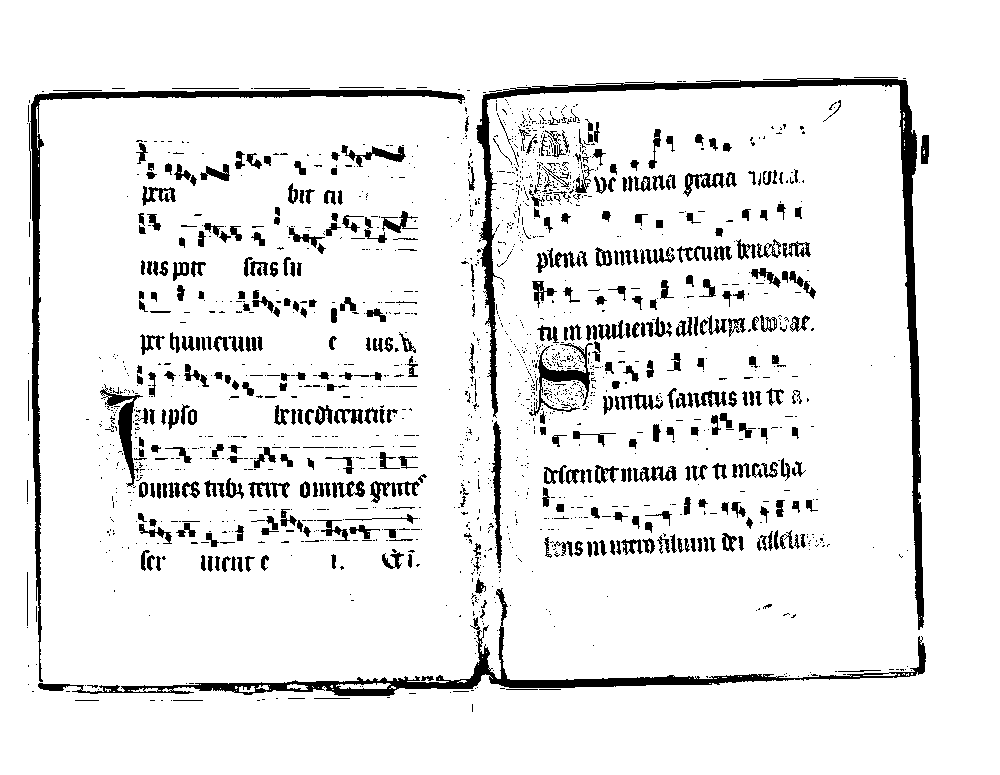 pra bit eu
ius pote stas su
per humerum e ius. v.
In ipso benedicentur
omnes tribz terre omnes gente
ser uient e i. Et i.
9
Ave maria gracia
plena dominus tecum benedicta
tu in mulieribz alleluya. evovae.
Spiritus sanctus in te a.
descendet maria ne ti meas ha
bens in utero filium dei alleluya